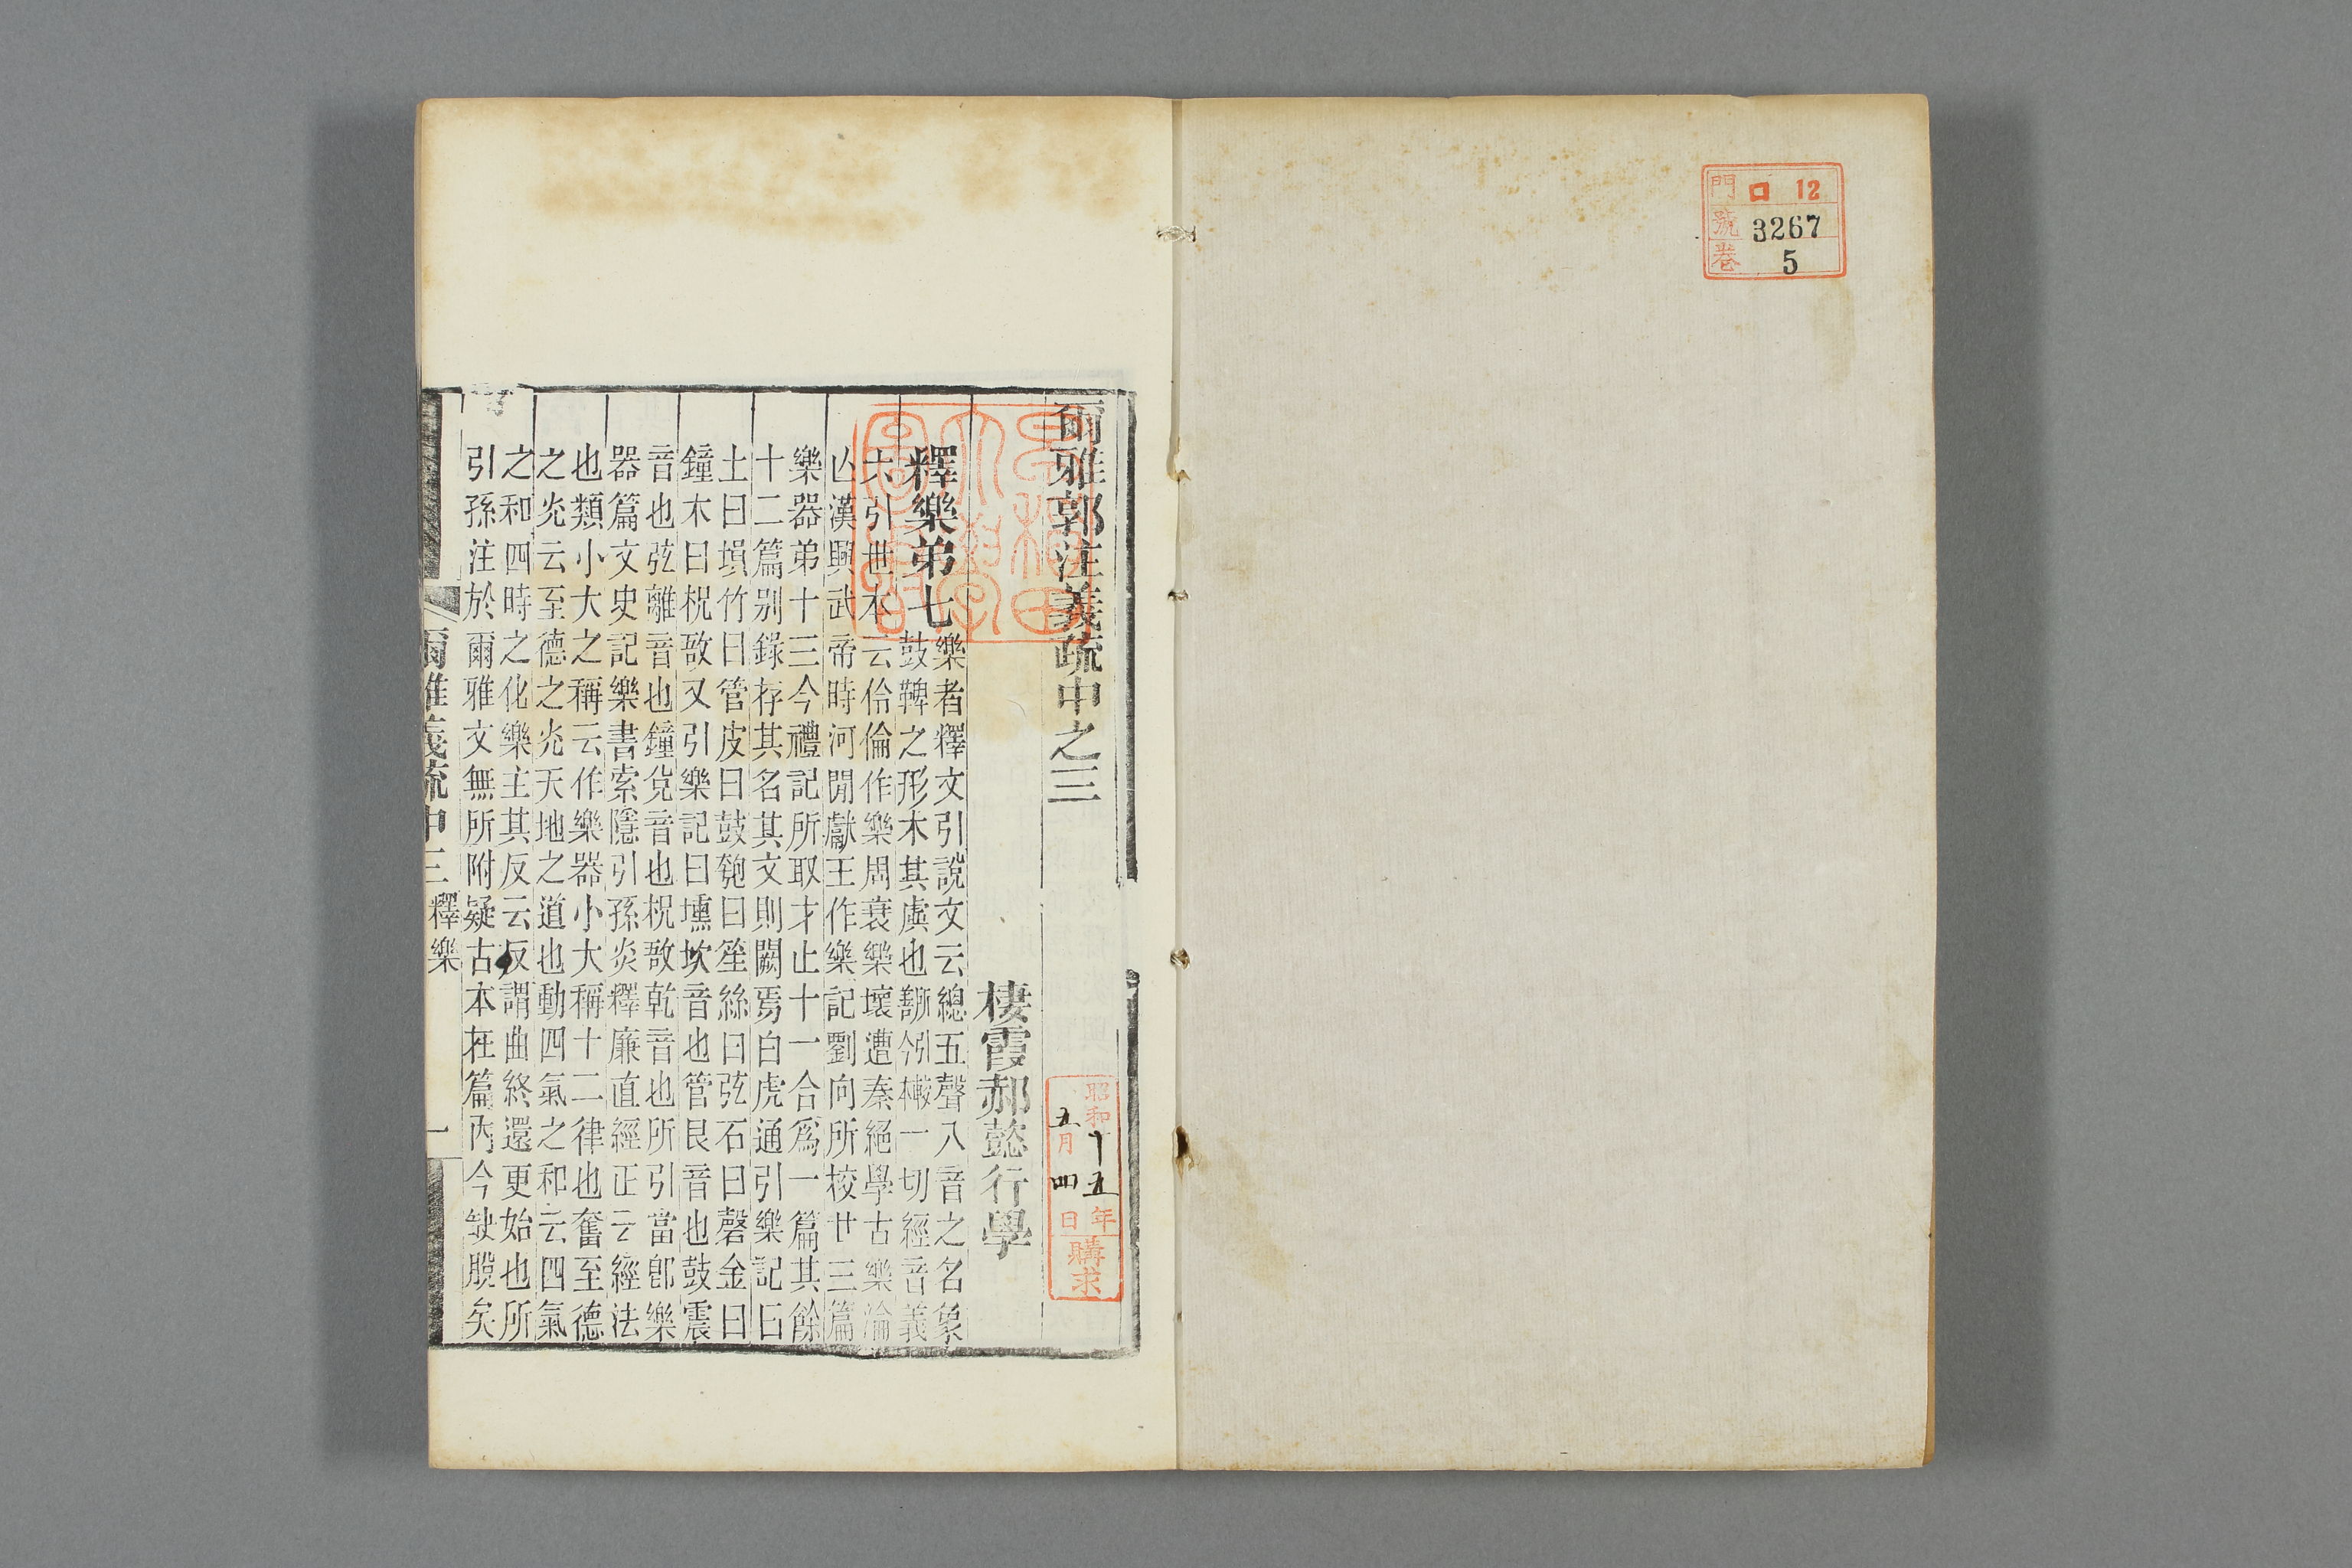 門 ロ 12
號 3267
卷 5
爾雅郭注義疏中之三
昭和十五年
五月四日
購求
早稻田
大學
圖書
棲霞郝懿行學
釋樂弟七
樂者釋文引說文云總五聲八音之名象
鼓鞞之形木其虡也
一切經音義
六引世本云伶倫作樂周衰樂壞遭秦絕學古樂淪
亾漢興武帝時河閒獻王作樂記劉向所校廿三篇
樂器弟十三今禮記所取才止十一合爲一篇其餘
十二篇別錄存其名其文則闕焉白虎通引樂記曰
土曰塤竹曰管皮曰鼓匏曰笙絲曰弦石曰磬金曰
鐘木曰柷敔又引樂記曰壎坎音也管艮音也鼓震
音也弦離音也鐘兌音也柷敔乾音也所引當卽樂
器篇文史記樂書索隱引孫炎釋廉直經正云經法
也類小大之稱云作樂器小大稱十二律也奮至德
之光云至德之光天地之道也動四氣之和云四氣
之和四時之化樂主其反云反謂曲終還更始也所
引孫注於爾雅文無所附疑古本在篇內今缺脫矣
爾雅義疏中三 釋樂 一